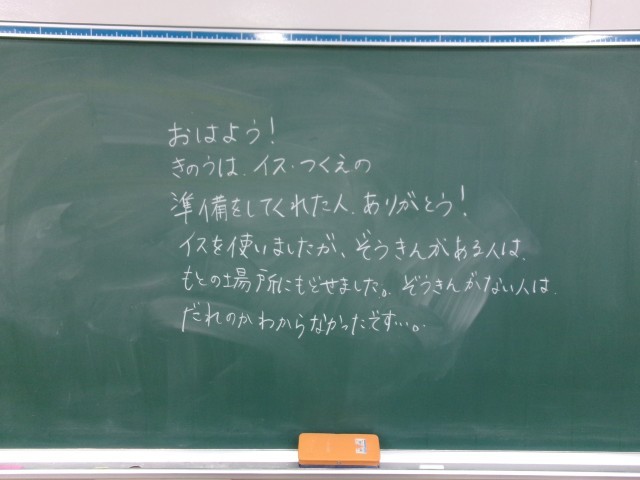 おはよう！
きのうは、イス・つくえの
準備をしてくれた人、ありがとう！
イスを使いましたが、ぞうきんがある人は、
もとの場所にもどせました。ぞうきんがない人は、
だれのかわからなかったです…。